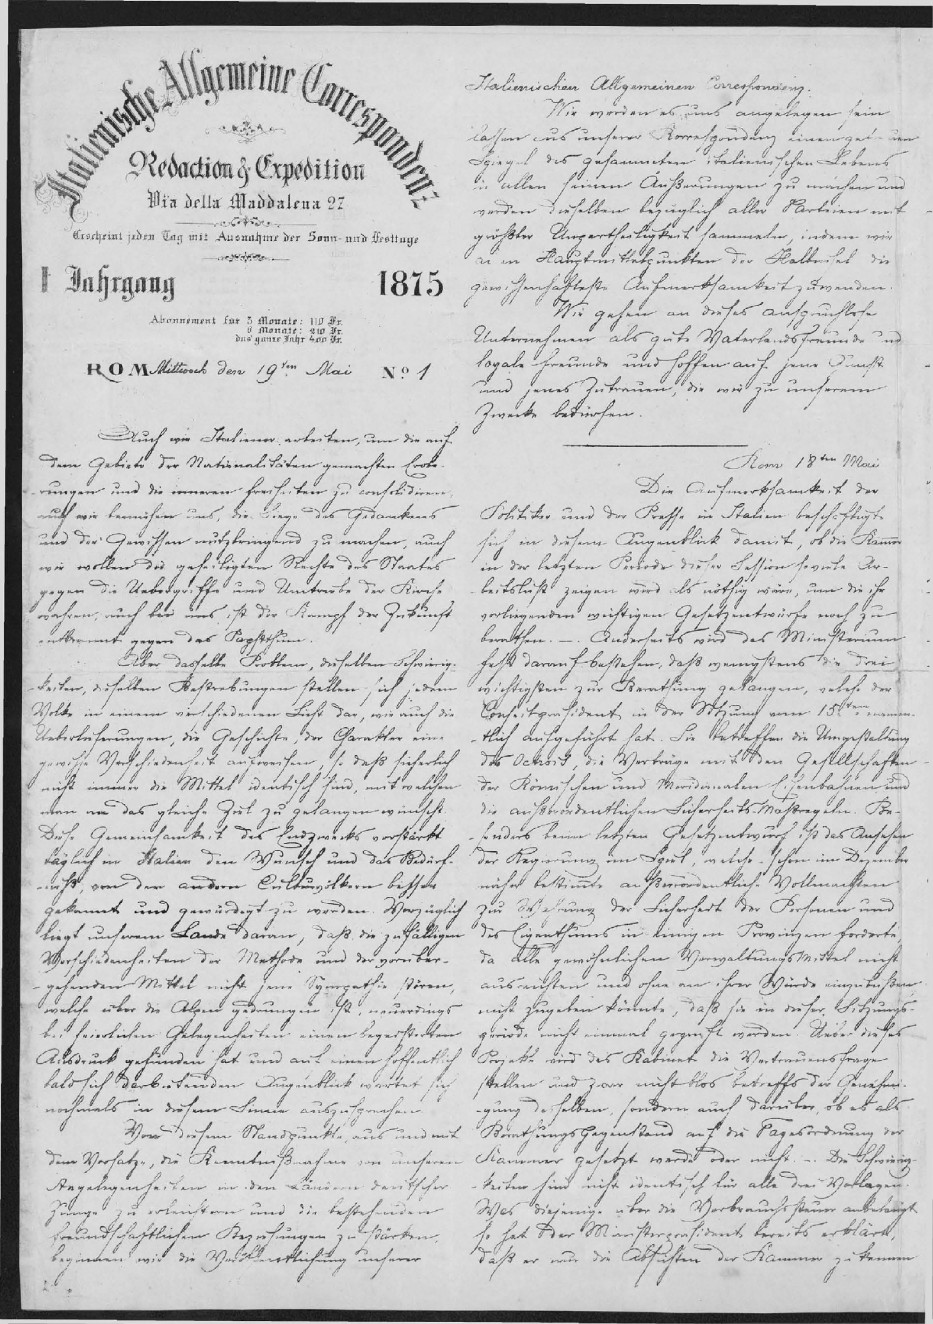 Italienische Allgemeine Correspondenz
Redaction & Expedition
Via della Maddalena 27
Erscheint jeden Tag mit Ausnahme der Sonn- und Festtage
I Jahrgang 1875
Abonnement für 3 Monate: 110 Fr.
6 Monate: 210 Fr.
das ganze Jahr 400 Fr.
ROM Mittwoch den 19ten Mai No 1
Auch wir Italiener arbeiten, um die auf
dem Gebiete der Nationalitäten gemachten Erobe-
rungen und die inneren Freiheiten zu consolidiren,
auch wir bemühen uns, die Siege des Gedankens
und der Gewissen nutzbringend zu machen, auch
wir wollen die geheiligten Rechte des Staates
gegen die Uebergriffe und der Kirche
wahren, auch bei uns ist der Kampf der Zukunft
entbrannt gegen das Papstthum.
Aber dasselbe Problem, dieselben Schwierig-
keiten, dieselben Bestrebungen stellen sich jedem
Volke in einem verschiedenen Licht dar, wie auch die
Ueberlieferungen, die Geschichte, der Charakter eine
gewisse Verschiedenheit aufweisen, so daß sicherlich
nicht immer die Mittel identisch sind, mit welchen
man an das gleiche Ziel zu gelangen wünscht.
Diese Gemeinsamkeit des Endzwecks verstärkt
täglich in Italien den Wunsch und das Bedürf-
niß, von den andern Culturvölkern besser
gekannt und gewürdigt zu werden. Vorzüglich
liegt unserem Lande daran, daß die zufälligen
Verschiedenheiten der Methode und der vorüber-
gehenden Mittel nicht jene Sympathie stören,
welche über die Alpen gedrungen ist, neuerdings
bei feierlichen Gelegenheiten einen begeisterten
Ausdruck gefunden hat und auf einen hoffentlich
bald sich darbietenden Augenblick wartet sich
nochmals in diesem Sinne auszusprechen.
Von diesem Standpunkte aus und mit
dem Vorsatze, die Kenntnißnahme von unseren
Angelegenheiten in den Ländern deutscher
Zunge zu erleichtern und die bestehenden
freundschaftlichen Beziehungen zu stärken,
beginnen wir die Veröffentlichung unserer
Italienischen Allgemeinen Correspondenz.
Wir werden es uns angelegen sein
lassen aus unserer Korrespondenz einen
Spiegel des gesammten italienischen Lebens
in allen seinen Äußerungen zu machen und
werden dieselben bezüglich aller Parteien mit
größter Unpartheilichkeit sammeln, indem wir
an den Hauptmittelpunkten der Halbinsel die
gewissenhafteste Aufmerksamkeit zuwenden.
Wir gehen an dieses anspruchslose
Unternehmen als gute Vaterlandsfreunde und
loyale Freunde und hoffen auf jene Gunst
und jenes Zutrauen, die wir zu unserem
Zwecke bedürfen.
Rom 18ten Mai
Die Aufmerksamkeit der
Politiker und der Presse in Italien beschäftigt
sich in diesem Augenblick damit, ob die Kammer
in der letzten Periode dieser Session soviele Ar-
beitslust zeigen wird als nöthig wäre, um die ihr
vorliegenden wichtigen Gesetzentwürfe noch zu
berathen. — Anderseits wird das Ministerium
fest darauf bestehen, daß wenigstens die drei
wichtigsten zur Berathung gelangen, welche der
Conseilpräsident in der Sitzung vom 15ten nament-
lich aufgeführt hat. Sie betreffen die Umgestaltung
des Octroi, die Verträge mit den Gesellschaften
der Römischen und Meridionalen Eisenbahnen und
die außerordentlichen Sicherheits-Maßregeln. Be-
sonders beim letzten Gesetzentwurf ist das Ansehen
der Regierung im Spiel, welche schon im Dezember
näher bestimmte außerordentliche Vollmachten
zu Wahrung der Sicherheit der Personen und
des Eigenthums in einigen Provinzen forderte
da alle gewöhnlichen Verwaltungsmittel nicht
ausreichten und ohne an ihrer Würde einzubüßen
nicht zugeben könnte, daß sie in dieser Sitzungs-
periode nicht einmal geprüft werden. Ueber dieses
Projekt wird das Kabinet die Vertrauensfrage
stellen und zwar nicht blos betreffs der Genehmi-
gung desselben, sondern auch darüber, ob es als
Berathungsgegenstand auf die Tagesordnung der
Kammer gesetzt werde oder nicht. — Die Schwierig-
keiten sind nicht identisch für alle drei Vorlagen.
Was diejenige über die Verbrauchssteuer anbelangt
so hat der Ministerpräsident bereits erklärt,
daß er nur die Absichten der Kammer zu kennen